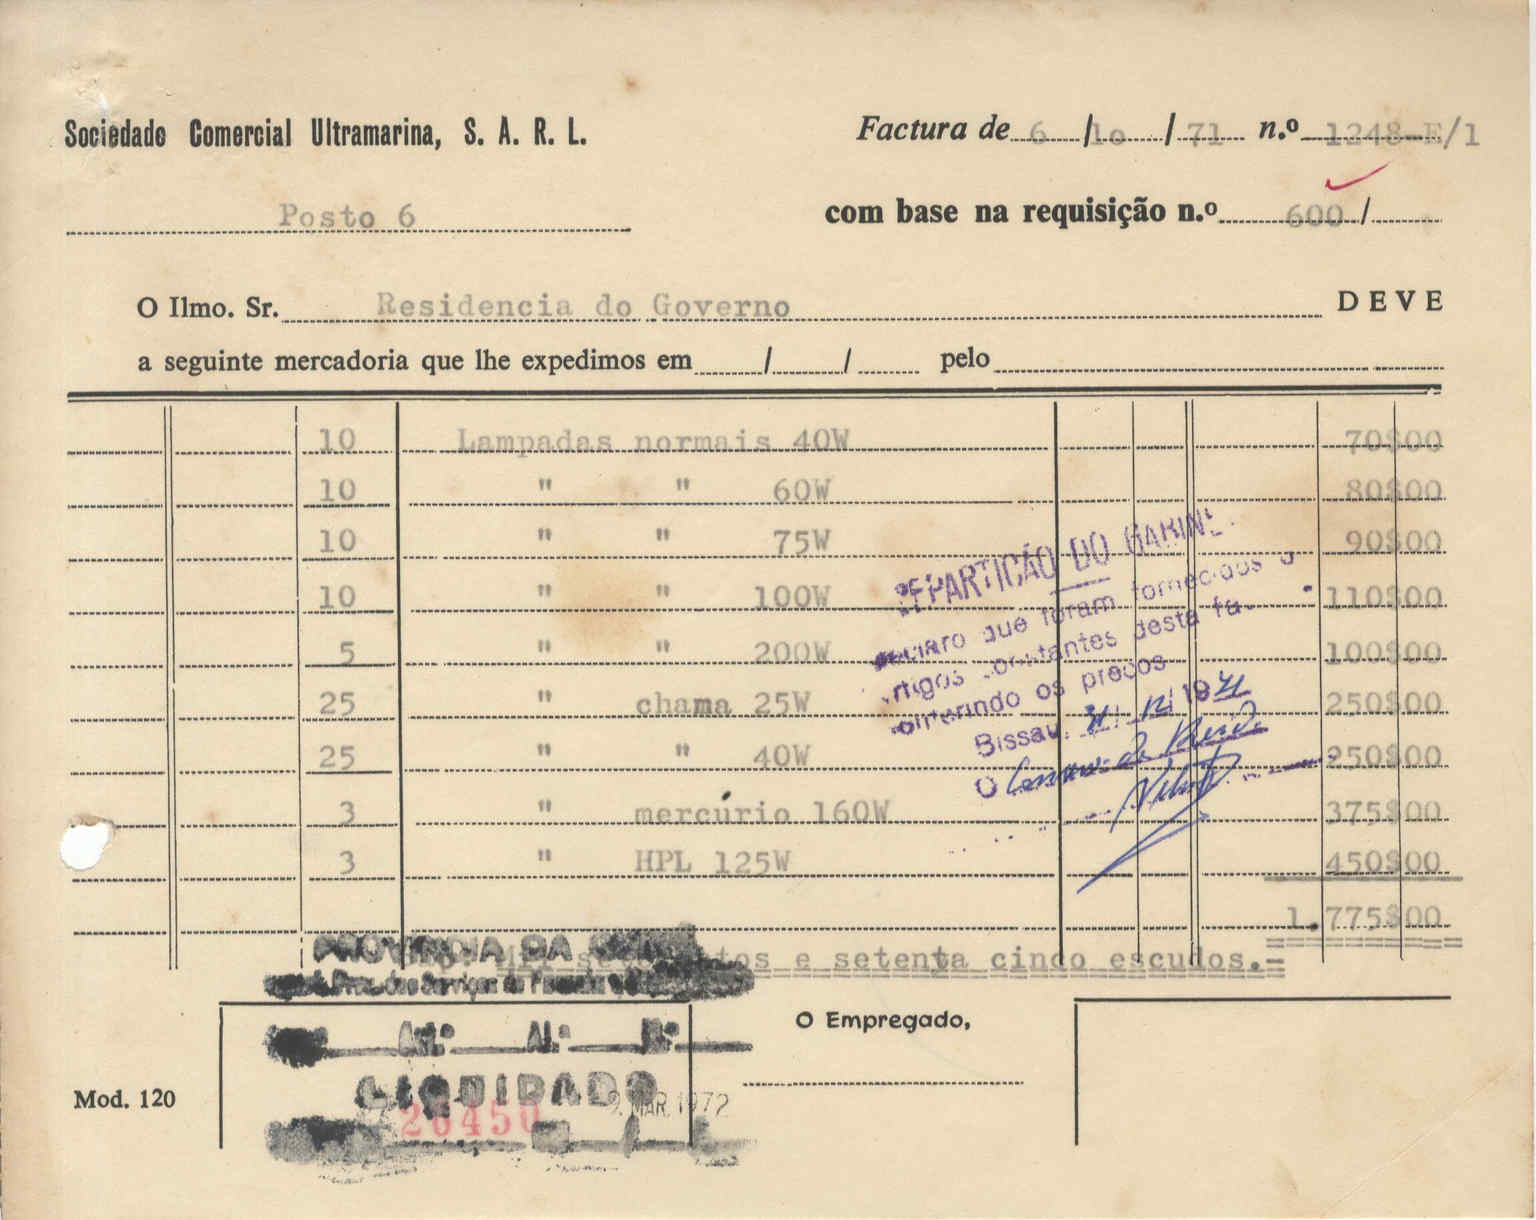 Sociedade Comercial Ultramarina, S. A. R. L.
Factura de 6 / 10 / 71 n.º 1248-E/1
Posto 6
com base na requisição n.º 600 /
O Ilmo. Sr. Residencia do Governo DEVE
a seguinte mercadoria que lhe expedimos em / / pelo
10 Lampadas normais 40W 70$00
10 " " 60W 80$00
10 " " 75W 90$00
10 " " 100W 110$00
5 " " 200W 100$00
25 " chama 25W 250$00
25 " " 40W 250$00
3 " mercúrio 160W 375$00
3 " HPL 125W 450$00
1.775$00
e setenta cinco escudos.-
REPARTIÇÃO DO
que foram fornecidos
constantes desta fa-
os preços
Bissau, 12/1971
O
PROVINCIA DA
dos Serviços de
Art.º Al.ª N.º
LIQUIDADO
26450 9. MAR. 1972
O Empregado,
Mod. 120